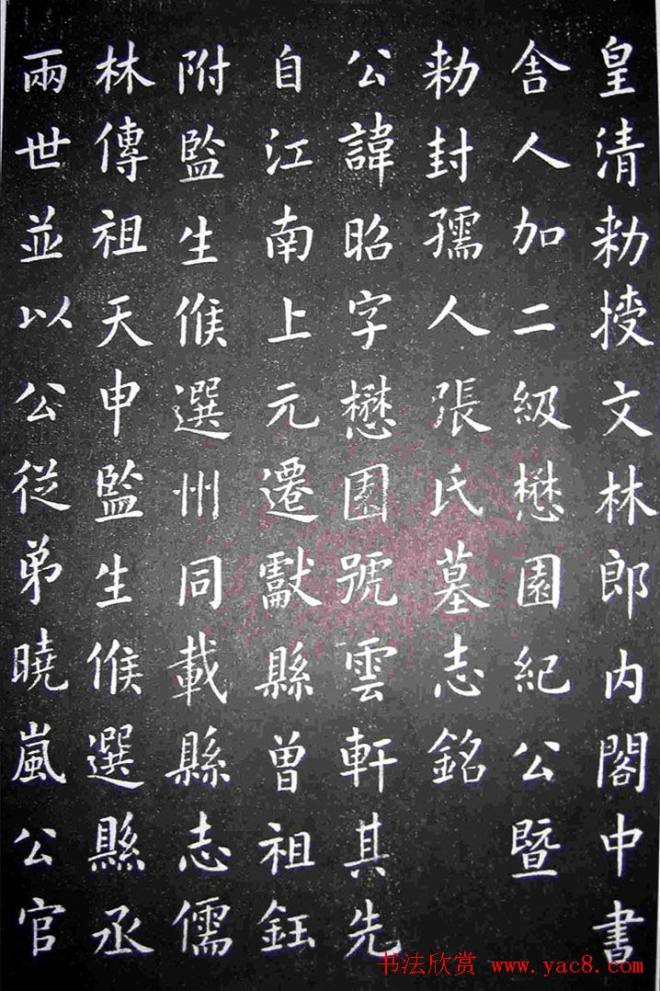 皇清勑授文林郎内閣中書
舍人加二級懋園紀公暨
勑封孺人張氏墓志銘
公諱昭字懋園號雲軒其先
自江南上元遷獻縣曾祖鈺
附監生候選州同載縣志儒
林傳祖天申監生候選縣丞
兩世並以公從弟曉嵐公官
书法欣赏 www.yac8.com